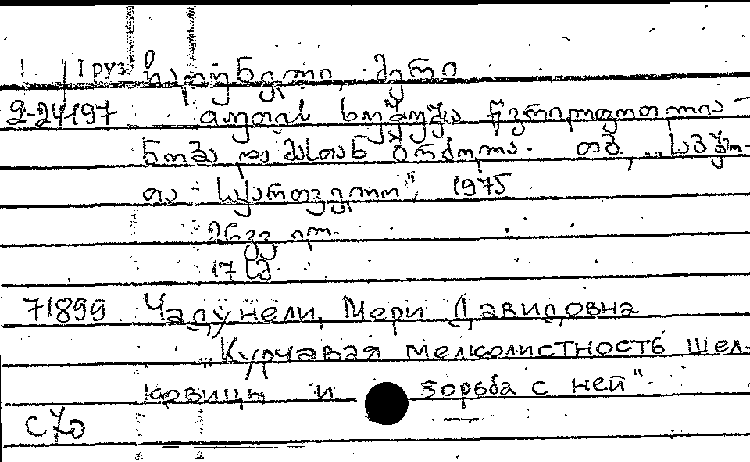 Груз ჩადუნელი, მერი
2-24197 თუთის ხუჭუჭა წვრილფოთლია-
ნობა და მასთან ბრძოლა. თბ, „საბჭო-
თა საქართველო", 1975
26 გვ
17 სმ.
71899 Чадунели, Мери Давидовна
„Курчавая мелколистность шел-
ковицы и борьба с ней".